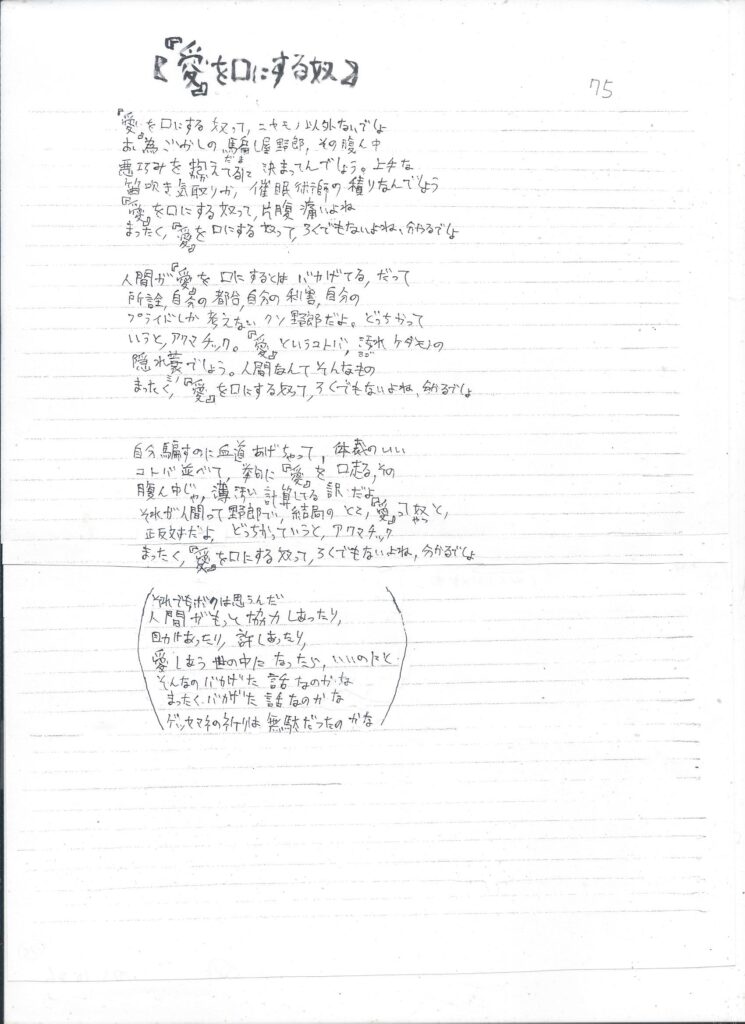 【『愛』を口にする奴】
75
『愛』を口にする奴って，ニセモノ以外ないでしょ
お為ごかしの騙し屋野郎，その腹ん中
悪巧みを抱えてるに決まってんでしょう。上手な
笛吹き気取りか，催眠術師の積りなんでしょう
『愛』を口にする奴って，片腹痛いよね
まったく，『愛』を口にする奴って，ろくでもないよね，分かるでしょ
人間が『愛』を口にするとは バカげてる，だって
所詮，自分の都合，自分の利害，自分の
プライドしか考えないクソ野郎だよ。どっちかって
いうと，アクマチック。『愛』というコトバ，汚れケダモノの
隠れ蓑でしょう。人間なんてそんなもの
まったく，『愛』を口にする奴って，ろくでもないよね，分かるでしょ
自分騙すのに血道あげちゃって，体裁のいい
コトバ並べて，挙句に『愛』を口走る，その
腹ん中じゃ，薄汚い計算してる訳だよ
それが人間って野郎で，結局のとこ，『愛』って奴と，
正反対だよ，どっちかっていうと，アクマチック
まったく，『愛』を口にする奴って，ろくでもないよね，分かるでしょ
それでもボクは思うんだ
人間がもっと協力しあったり，
助けあったり，許しあったり，
愛しあう世の中になったら，いいのにと
そんなのバカげた話なのかな
まったくバカげた話なのかな
ゲッセマネの祈りは無駄だったのかな